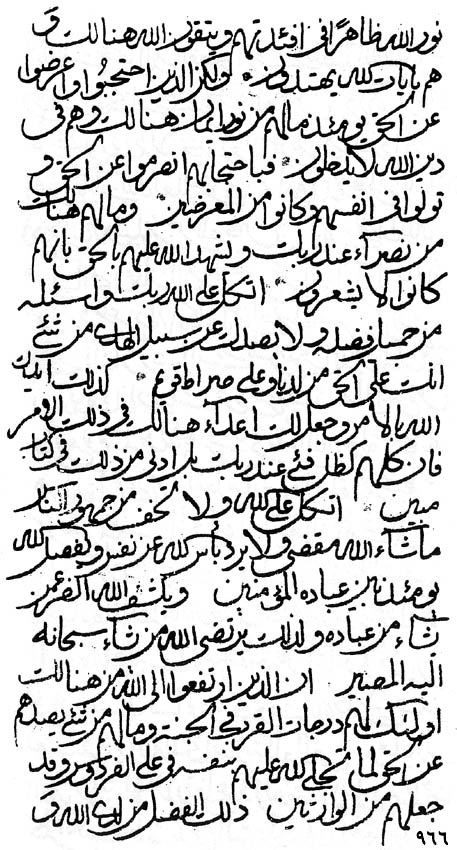 نور الله ظاهرًا فی افئدتهم و یتقون الله هنالک و
هم بایات الله یهتدون و لکن الذین احتجبوا و اعرضوا
عن الحق یومئذ مالهم من نور ایمان هنالک و هم فی
دین الله لا یدخلون فباحتجابهم انصرموا عن الحق و
تولوا فی انفسهم و کانوا من المعرضین و مالهم هنالک
من نصرآء عند ربک و یشهد الله علیهم بالحق بانهم
کانوا لا یشعرون اتکل علی الله ربک و اسئله
من فضله و لا یصدک عن سبیل الهدی من شئ
انک علی الحق من لدنا و علی صراط قویم کذلک ایدک
الله بالامر و جعل لک اعدآء هنالک فی ذلک الامر
فان کلهم کظل فئ عند ربک بل ادنی من ذلک فی کتاب
مبین اتکل علی الله و لا تخف من جمهور الناس
ما شآء الله مقضی و لا یرد باس الله عن نفس و یفصل الله
یومئذ بین عباده المؤمنین و یکشف الله الضر عمن
یشآء من عباده و لذلک یرتضی الله من شآء سبحانه
الیه المصیر ان الذین ارتفعوا الی الله من هنالک
اولئک لهم درجات القرب فی الجنة و مالهم من شئ یصدهم
عن الحق لما تجلی الله علیهم بنفسه فی علی الفردوس و قد
جعلهم من الوارثین ذلک الفضل من لدی الله و
۹۶۶